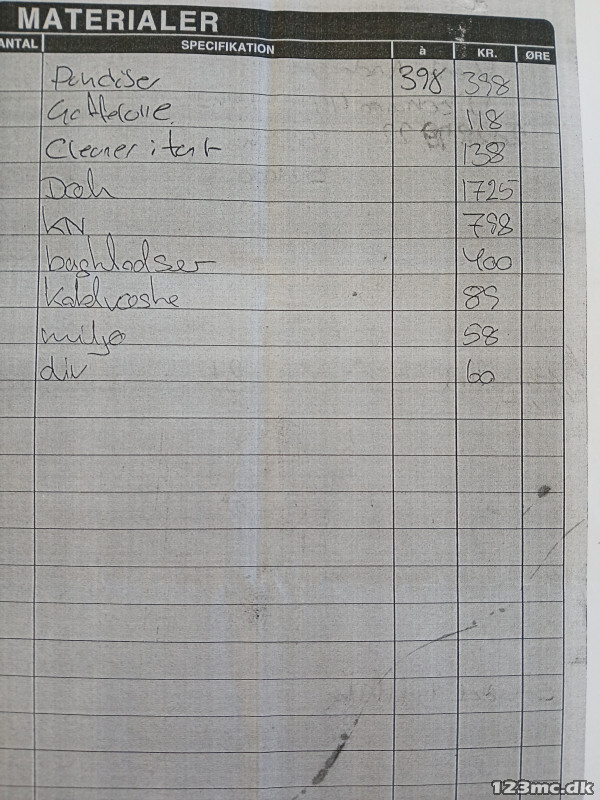 MATERIALER
ANTAL SPECIFIKATION à KR. ØRE
398 398
Gaffelolie 118
Cleaner i tank 138
Dæk 1725
KN 798
bagklodser 400
Koldvaske 89
miljø 58
div 60
123mc.dk